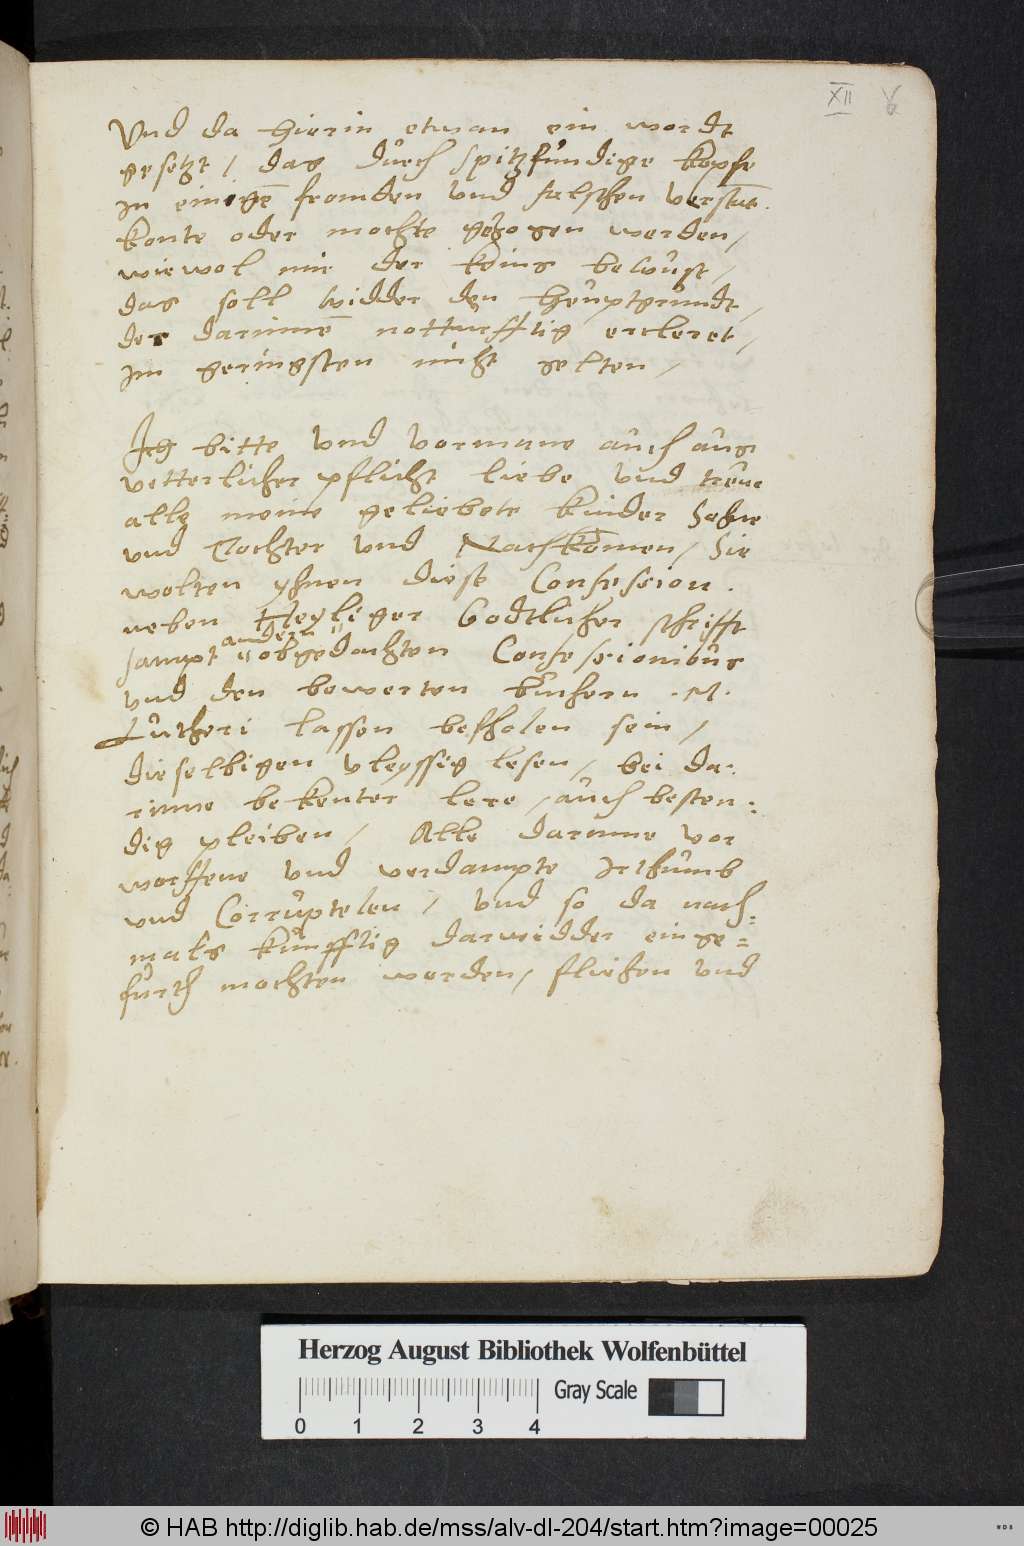 XII 6
Und da hierin etwan ein wordt
gesetzt / das durch spitzfundige kopfe
in einigē fromden und falschen verstant
konte oder mochte gezogen werden /
wiewol mir der keins bewust /
das soll widder den heuptgrundt /
der darinnē notturfftig ercleret /
im geringsten nicht gelten /
Ich bitte und vormane auch aus
vetterlicher pflicht liebe und treue
alle meine geliebete kinder Sohne
und Tochter und Nachkomen / Sie
wolten yhnen diese Confession
neben Heyliger Godtlicher schrifft
sampt andern obgedachten Confessionibus
und den bewerten buchern .M.
Lutheri lassen befholen sein /
dieselbigen vleyssig lesen / bei da:
rinne bekenter lere / auch besten:
dig pleiben / Alle darinne vor
worffene und verdampte Irthumb
und Corruptelen / und so da nach=
mals kunfftig darwidder einge=
furth mochten werden / fliehen und
Herzog August Bibliothek Wolfenbüttel
0 1 2 3 4
Gray Scale
© HAB http://diglib.hab.de/mss/alv-dl-204/start.htm?image=00025